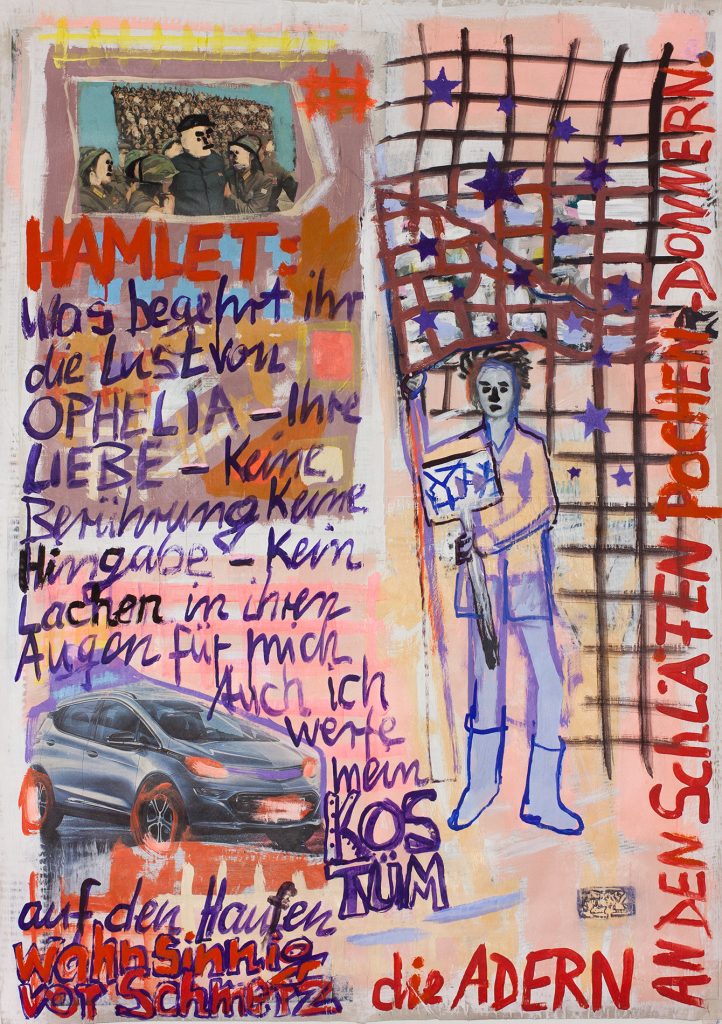 HAMLET:
Was begehrt ihr
die Lust von
OPHELIA – Ihre
LIEBE – Keine
Berührung Keine
Hingabe – Kein
Lachen in ihren
Augen für mich
Auch ich
werfe
mein
KOS
TÜM
auf den Haufen
wahnsinnig
vor Schmerz
die ADERN
AN DEN SCHLÄFEN POCHEN-DONNERN.